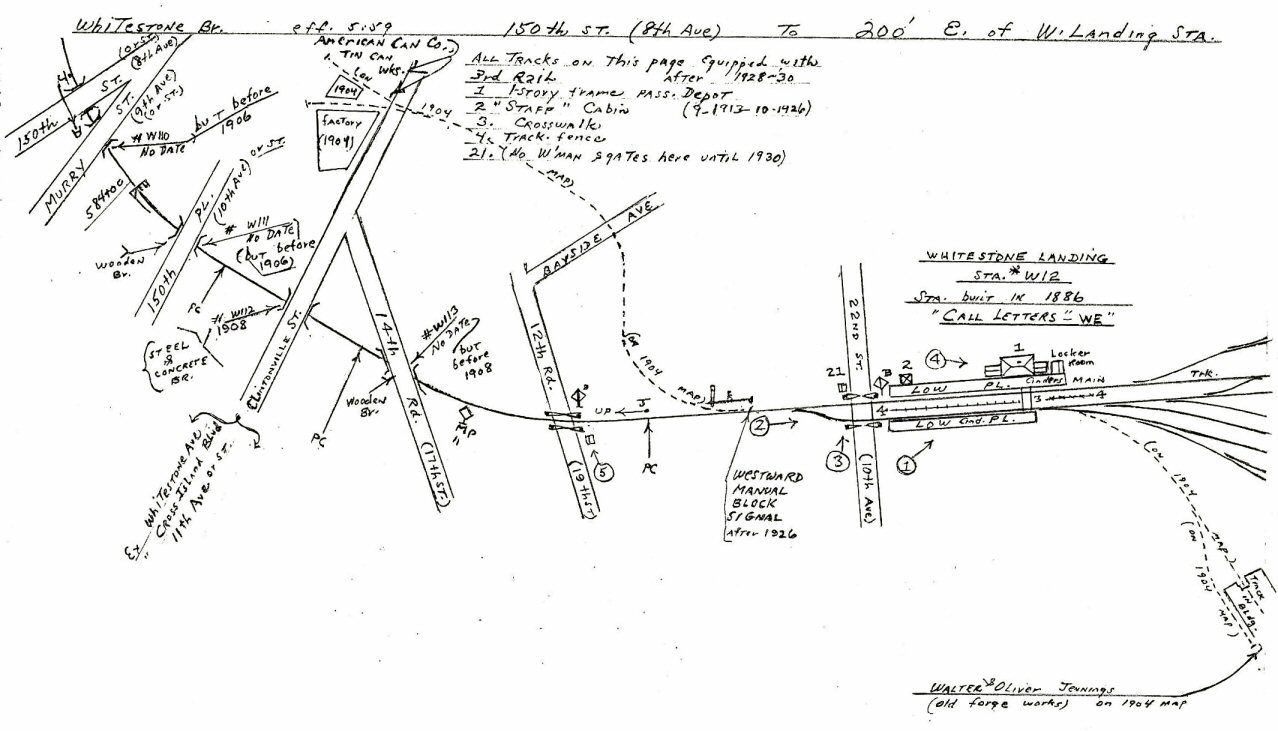 WHITESTONE Br. eff. 5:59 150th ST. (8th Ave) To 200' E. of W. Landing STA.
AMERICAN CAN CO.
TIN CAN
WKS.
(ON
1904
MAP)
ALL TRACKS on This page Equipped with
3rd RAIL after 1928-30
1 1-Story frame PASS. Depot
2 "STAFF" Cabin (9-1913-10-1926)
3. Crosswalk
4. Track fence
21. (No W'MAN & gATes here until 1930)
1904
FACTORY
(1904)
4.
(or ST.)
(8th Ave)
150th ST.
MURRY ST.
(9th Ave)
(or ST.)
# W110
NO DATE
but before
1906
584+00
Wooden
Br.
150th PL.
(10th Ave) or ST.
# W111
NO DATE
(but before
1906)
PC
# W112
1908
{STEEL
&
CONCRETE
BR.
CLINTONVILLE ST.
EX WHITESTONE AVE
" CROSS ISLAND Blvd
11th Ave. or ST.
14th Rd.
(17th ST.)
# W113
NO DATE
but
before
1908
Wooden
Br.
PC
BAYSIDE AVE
12th Rd.
(19th ST)
5
UP J
PC
1904
MAP)
2
WESTWARD
MANUAL
BLOCK
SIGNAL
After 1926
22ND ST.
(10th Ave)
21
B
2
3
1
4
WHITESTONE LANDING
STA. # W12
STA. built IN 1886
"CALL LETTERS" - "WE"
4
1
Locker
Room
LOW PL. Cinders MAIN TRK.
3 4
LOW Cind. PL.
(ON 1904 MAP)
(ON 1904 MAP)
Track
IN
Bldg.
WALTER & OLIVER JENNINGS
(old forge works) on 1904 MAP